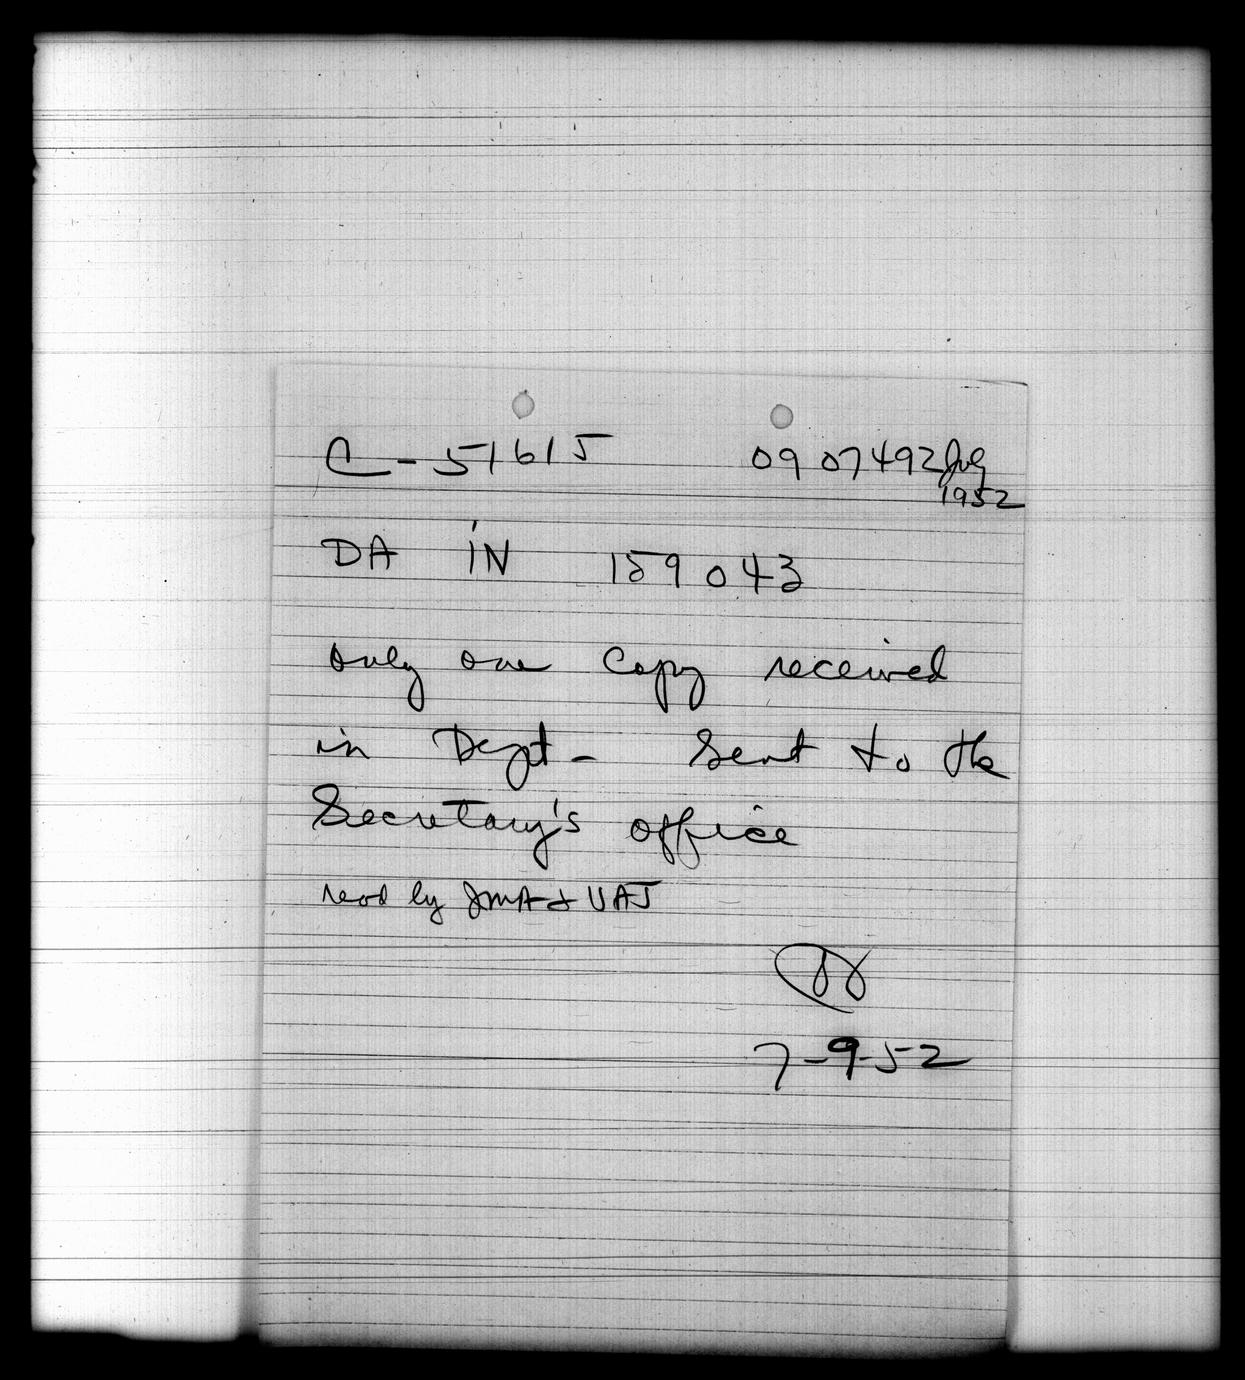 C-51615 090749Z July
1952
DA IN 159043
only one copy received
in Dept - Sent to the
Secretary's office
read by JMA & UAJ
7-9-52